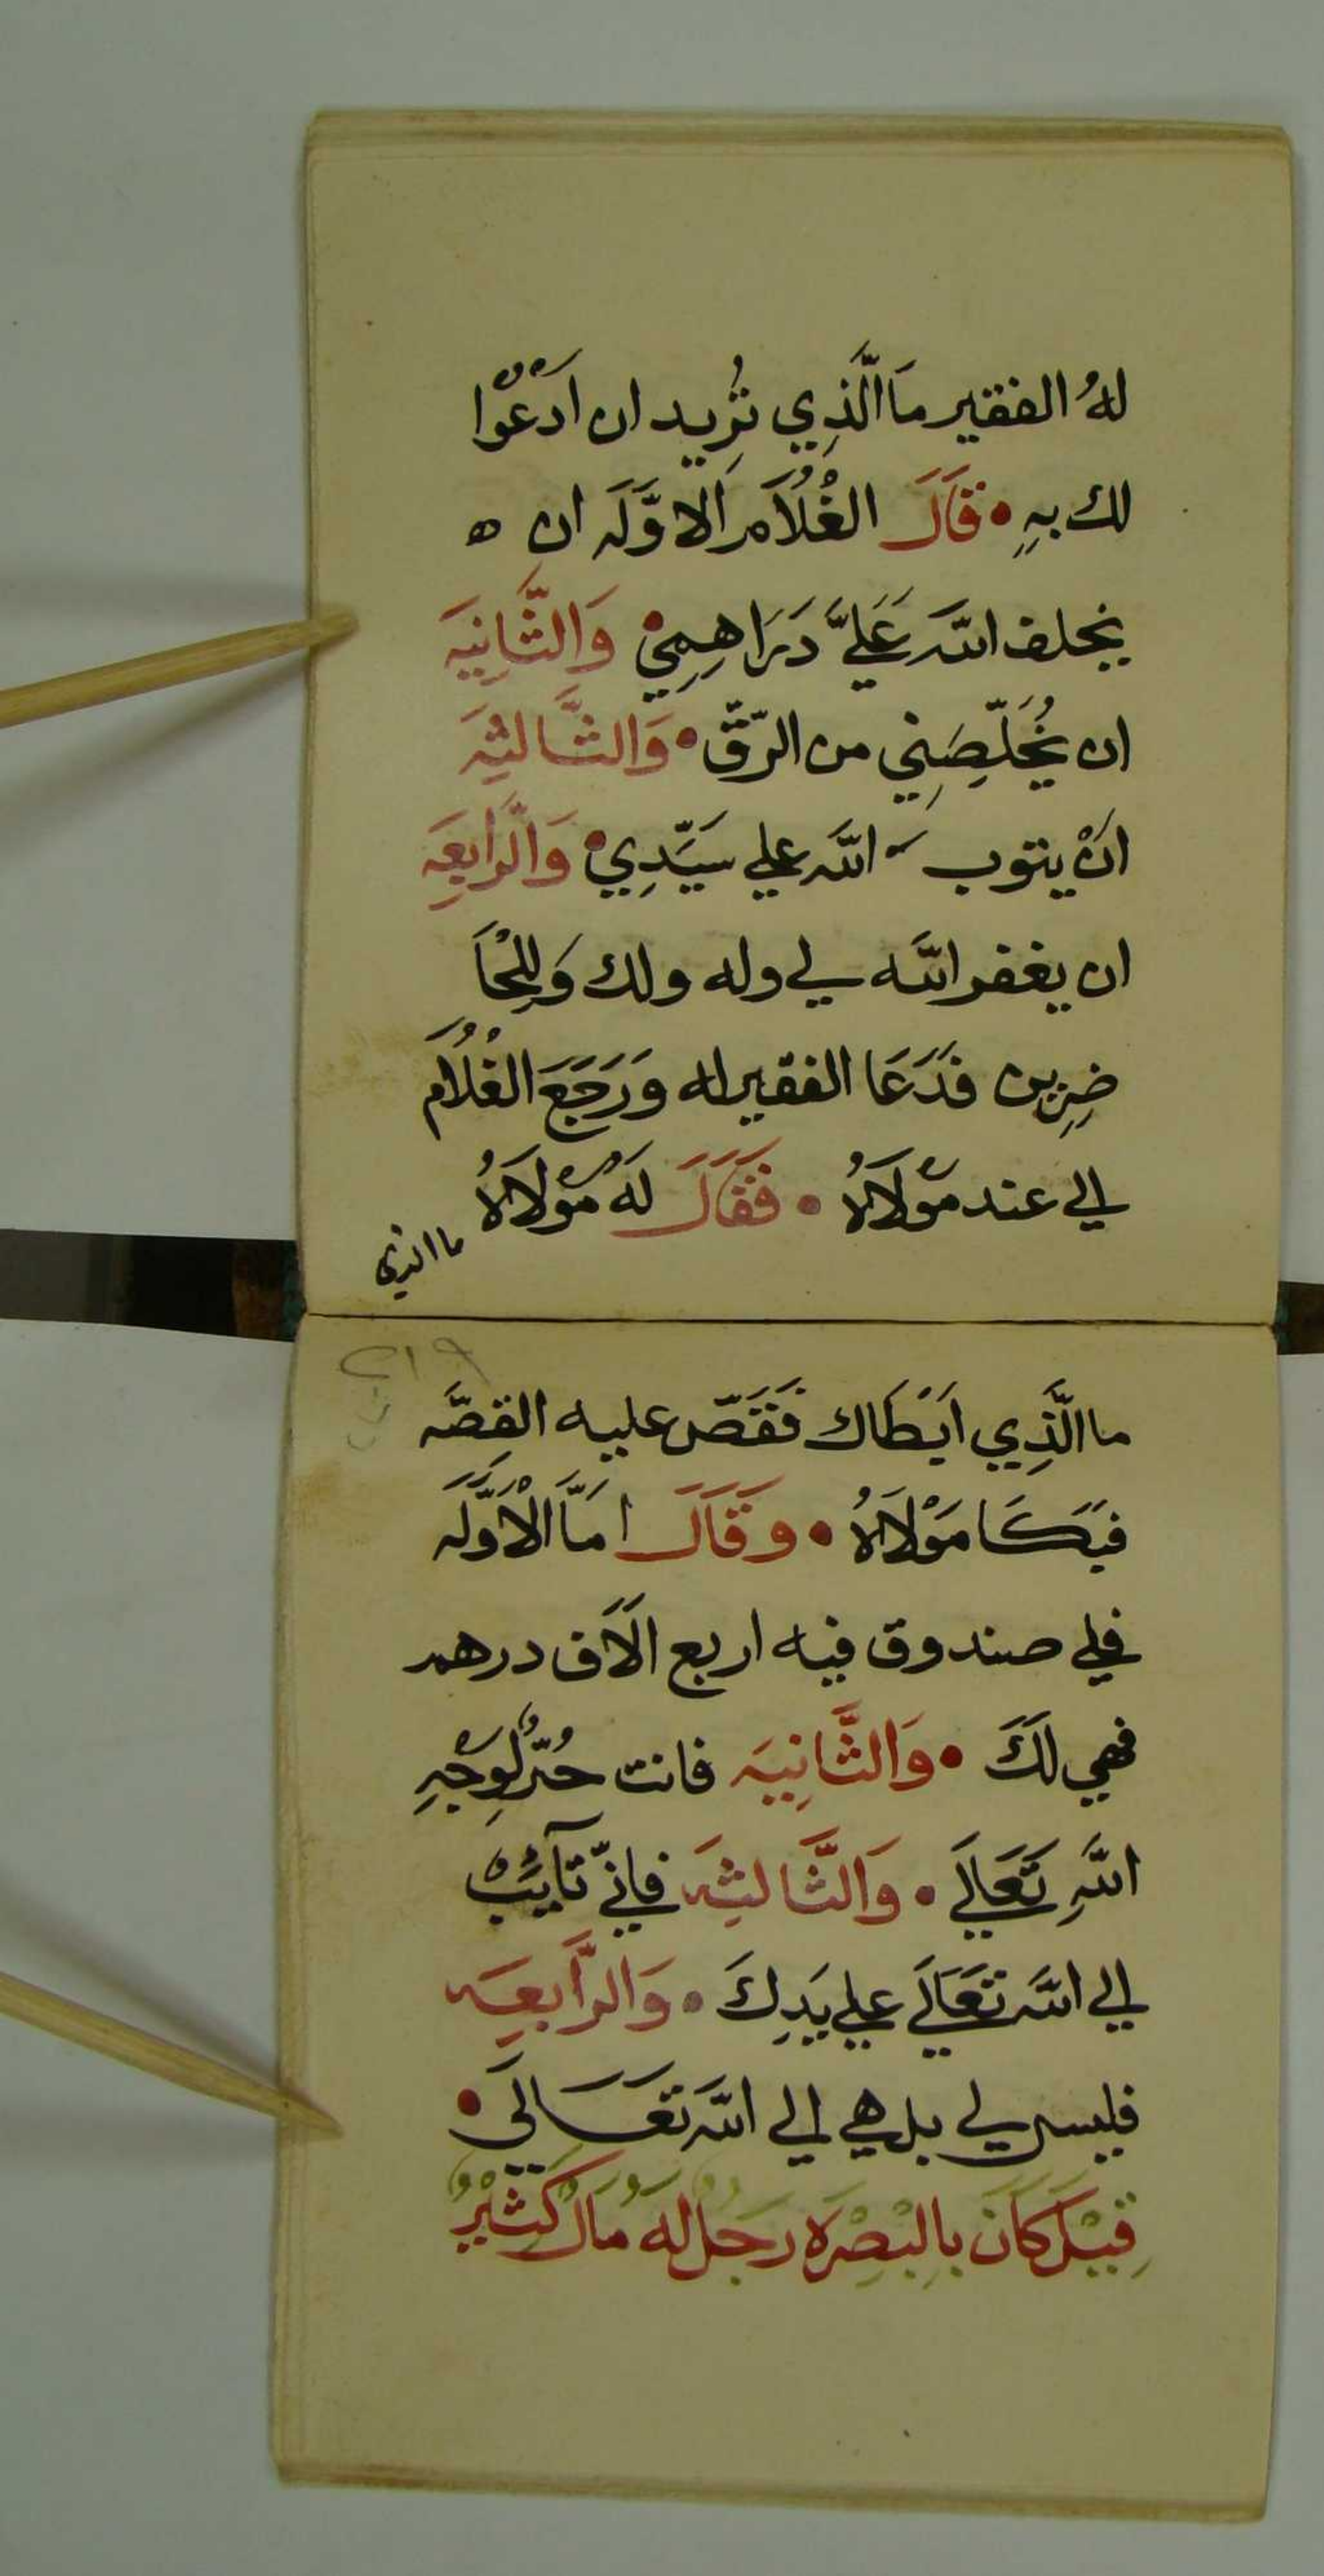 لهُ الفقير مَا الَّذِي تُرِيد ان اَدْعُوْا
لك بهِ • قَالَ الغُلَامُ الاوَّلَه ان ه
يخلف الله عَلَيَّ دَرَاهِمِيْ • وَالثَّانِيَه
ان يُخَلِّصَنِي من الرّقّ • وَالثَّالثِه
انْ يتوب الله علي سَيِّدِي • وَالرَّابِعَه
ان يغفر الله لي وله ولك وَلِلْحَا
ضِرِين فَدَعَا الفقير له وَرَجَعَ الغُلَامُ
الي عند مَوْلَاهُ • فَقَالَ لَهُ مَوْلَاهُ
ما الذي
٢١٩
ما الَّذِي اَبْطَاك فَقَصّ عليه القِصَّه
فبَكَا مَوْلَاهُ • وَقَالَ امَّا الْاَوَّلَه
فلي صندوق فيه اربع الَاف درهم
فهي لَكَ • وَالثَّانِيَه فانت حُرٌّ لِوَجْهِ
اللهِ تَعَالَي • وَالثَّالثِه فانّي تَآيِبٌ
الي الله تَعَالَي علي يَدِكَ • وَالرَّابعَه
فليس لي بل هي الي الله تَعَالَي •
قِيْلَ كَانَ بِالْبَصْرَه رَجُلٌ لَهُ مَالٌ كَثِيْرٌ